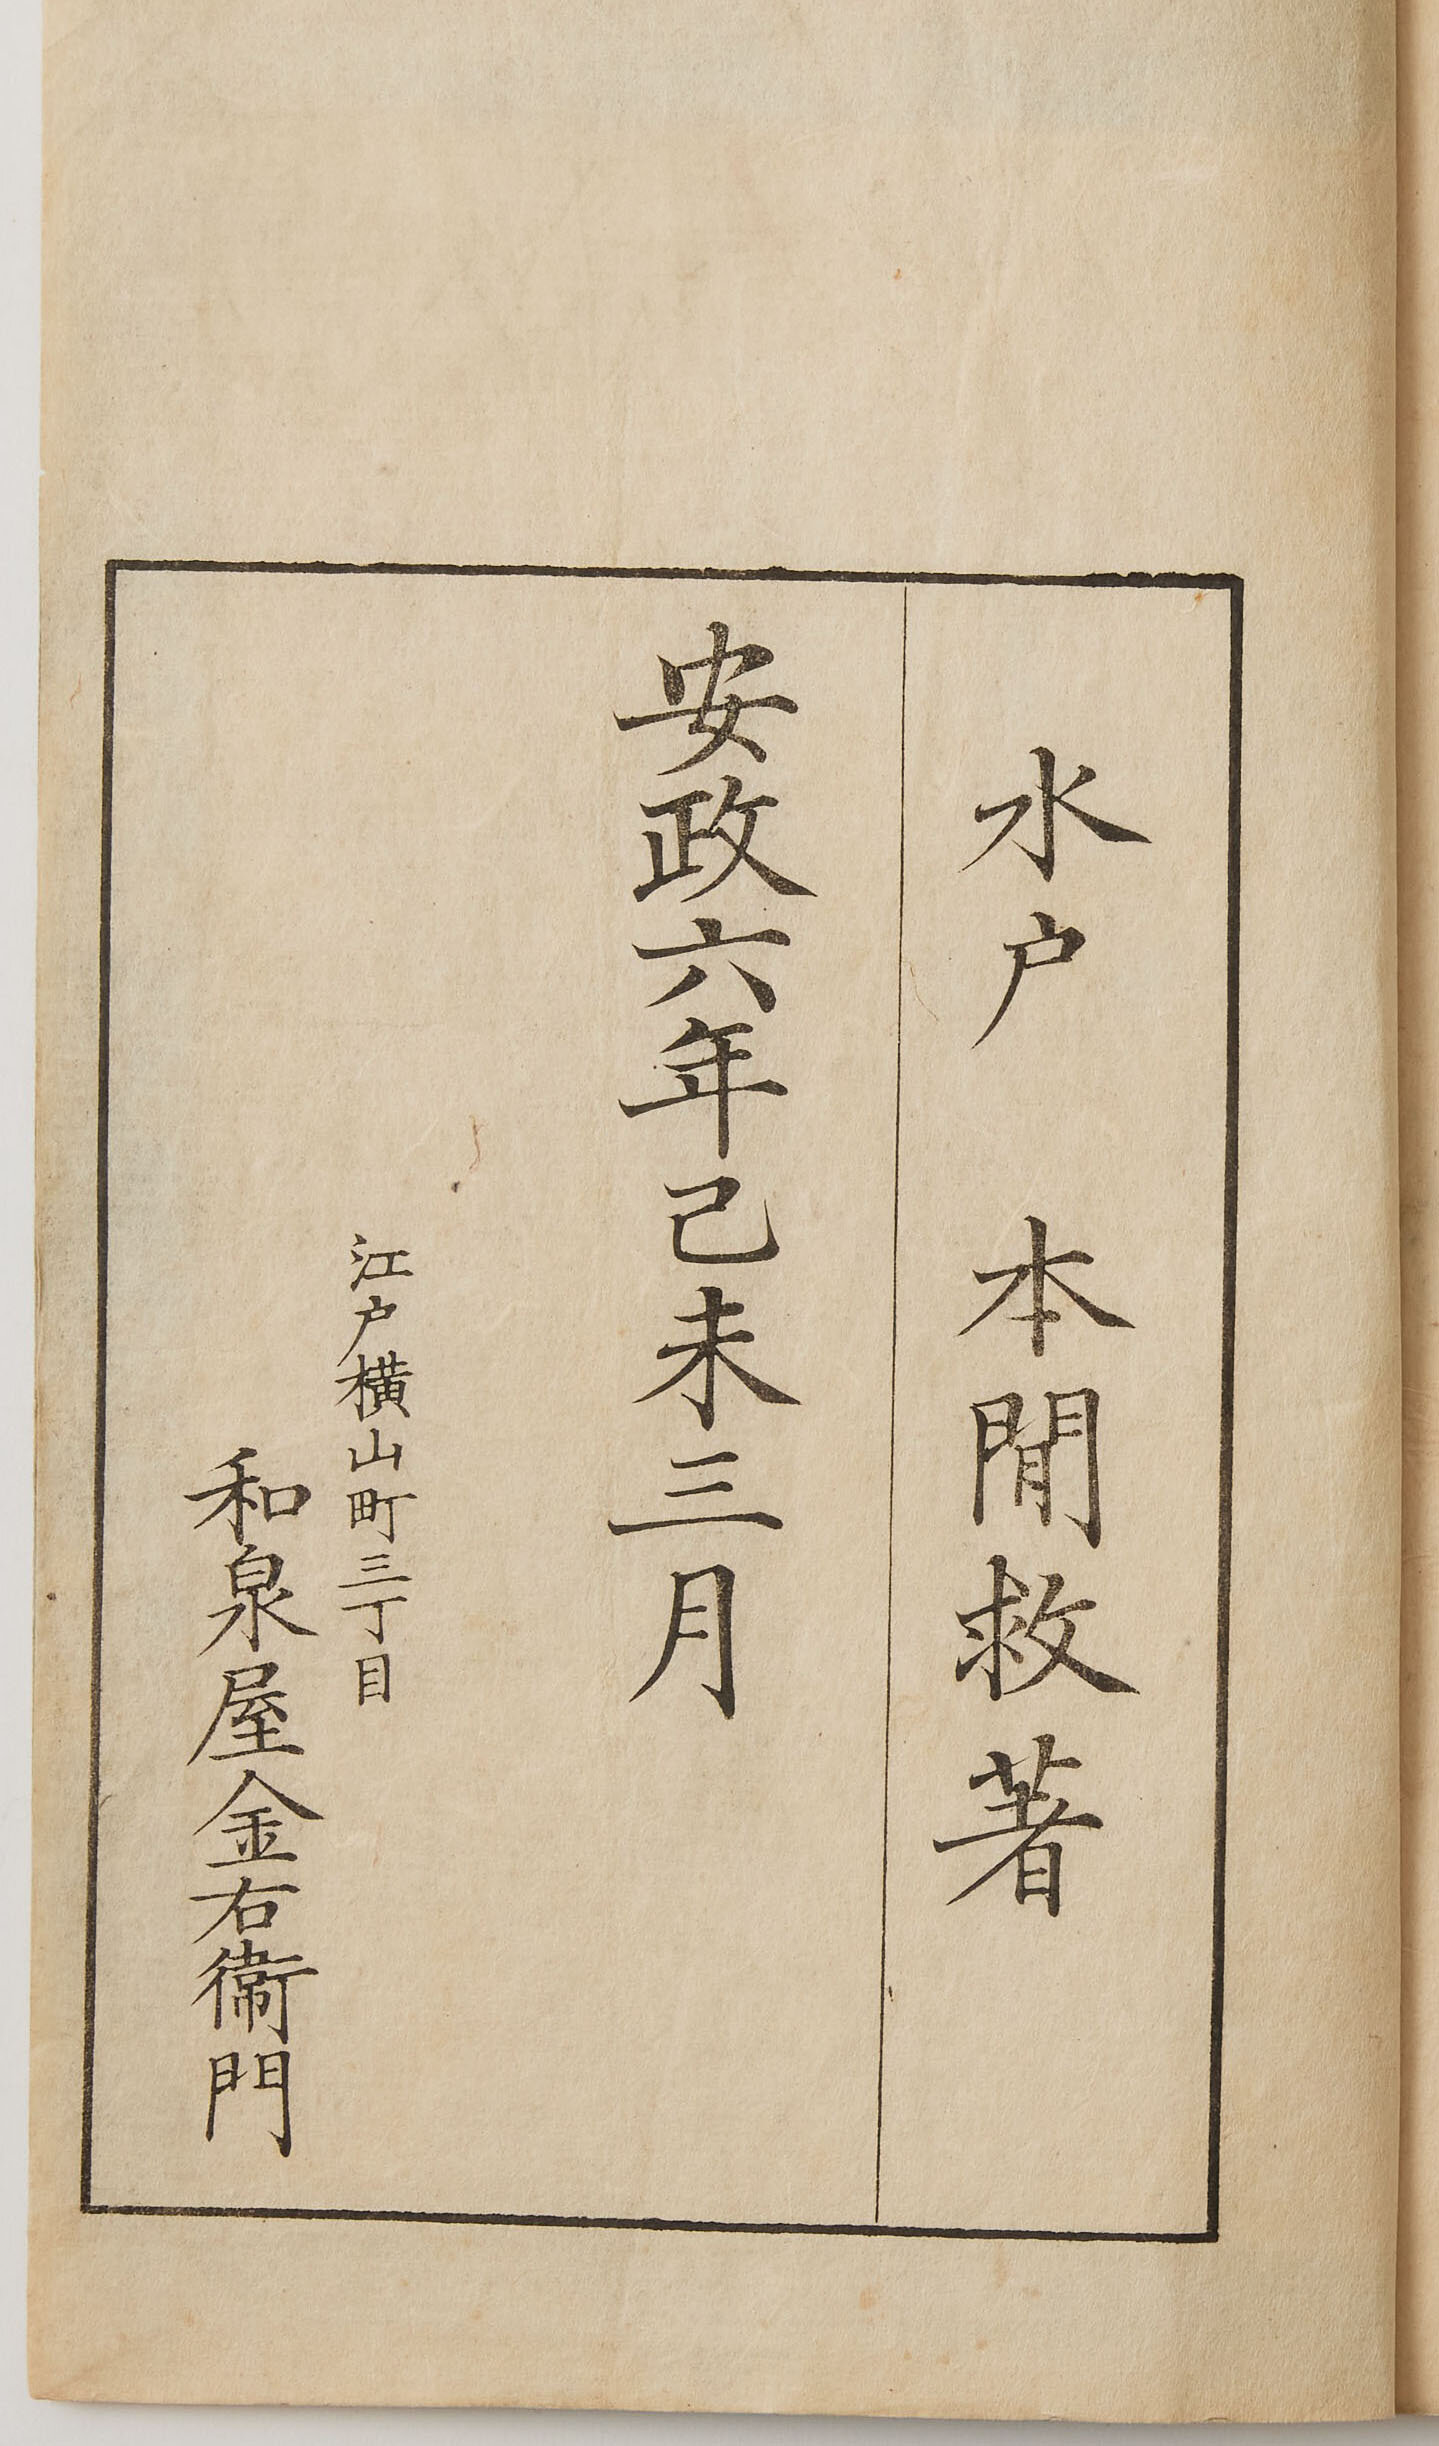 水戸　本間救著
安政六年己未三月
江戸横山町三丁目
和泉屋金右衞門